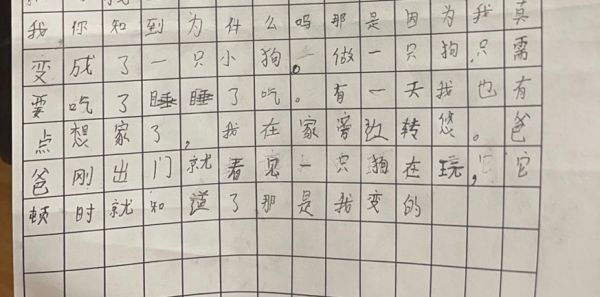 我你知到为什么吗那是因为我真
变成了一只小狗。做一只狗只需
要吃了睡睡了吃。有一天我也有
点想家了,我在家旁边转悠。爸
爸刚出门就看见一只狗在玩,它
顿时就知道了那是我变的